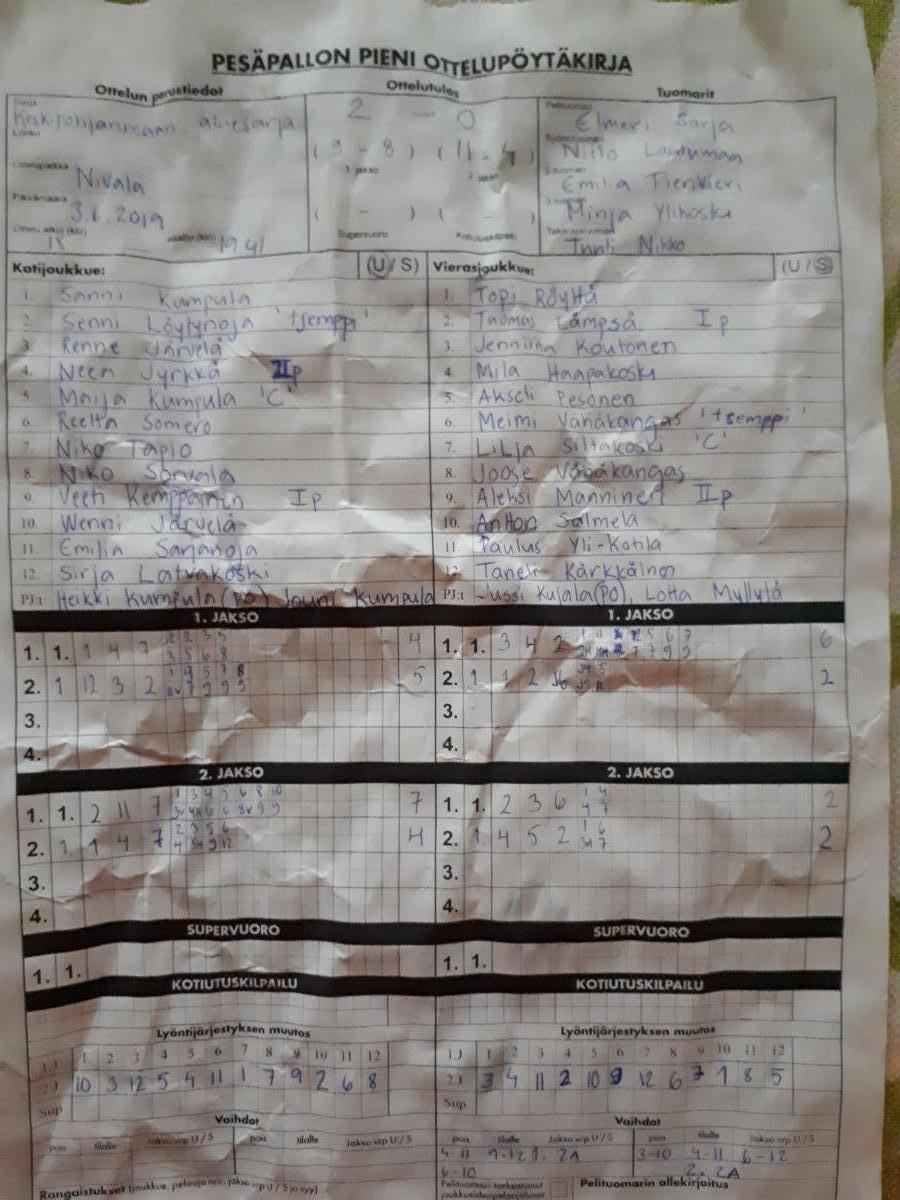 PESÄPALLON PIENI OTTELUPÖYTÄKIRJA
Ottelun perustiedot
Ottelutulos
Tuomarit
Sarja
Keskipohjanmaan aluesarja
Lohko
Ottelupaikka
Nivala
Päivämäärä
3.6.2019
Ottelu alkoi (klo) 18 päättyi (klo) 19 41
2 - 0
(9 - 8) (11 - 4)
1 jakso 2 jakso
( - ) ( - )
Supervuoro Kotiutuskilpailu
Pelituomari
Elmeri Sarja
Niilo
2-tuomari
Emilia Tienvieri
Minja Ylikoski
Takarajatuomari
Nikko
Kotijoukkue: (U / S)
1. Sanni Kumpula
2. Senni Löytynoja 'tsemppi'
3. Renne Järvelä
4. Neea Jyrkkä IIp
5. Maija Kumpula 'C'
6. Reetta Somero
7. Niko Tapio
8. Niko Sorvala
9. Veeti Kemppainen Ip
10. Wenni Järvelä
11. Emilia Sarjanoja
12. Sirja Latvakoski
PJ:t Heikki Kumpula (PO) Jouni Kumpula
Vierasjoukkue: (U / S)
1. Topi Röyttä
2. Tuomas Lämpsä Ip
3. Jenniina Koutonen
4. Mila Haapakoski
5. Akseli Pesonen
6. Meimi Vähäkangas 'tsemppi'
7. Lilja Siltakoski 'C'
8. Joose Vähäkangas
9. Aleksi Manninen IIp
10. Anton Salmela
11. Paulus Yli-Kotila
12. Taneli Kärkkäinen
PJ:t Jussi Kujala (PO), Lotta Myllylä
1. JAKSO
1. 1. 1 4 7 4
2. 1 12 3 2 5
3.
4.
1. JAKSO
1. 1. 3 4 2 6
2. 1 1 2 2
3.
4.
2. JAKSO
1. 1. 2 11 7 7
2. 1. 1 4 7 4
3.
4.
2. JAKSO
1. 1. 2 3 6 2
2. 1 4 5 2 2
3.
4.
SUPERVUORO
1. 1.
SUPERVUORO
1. 1.
KOTIUTUSKILPAILU
KOTIUTUSKILPAILU
Lyöntijärjestyksen muutos
1.J 1 2 3 4 5 6 7 8 9 10 11 12
2.J 10 3 12 5 4 11 1 7 9 2 6 8
Sup
Lyöntijärjestyksen muutos
1.J 1 2 3 4 5 6 7 8 9 10 11 12
2.J 3 4 11 2 10 9 12 6 7 1 8 5
Sup
Vaihdot
pois tilalle Jakso vrp U / S pois tilalle Jakso vrp U / S
Vaihdot
pois tilalle Jakso vrp U / S pois tilalle Jakso vrp U / S
4-11 9-12 1. 2A 3-10 4-11 6-12
6-10 2. 2A
Rangaistukset (joukkue, pelaaja nro, jakso vrp U / S ja syy)
Pelituomari tarkastanut
joukkueiden pelaajaluvat
Pelituomarin allekirjoitus